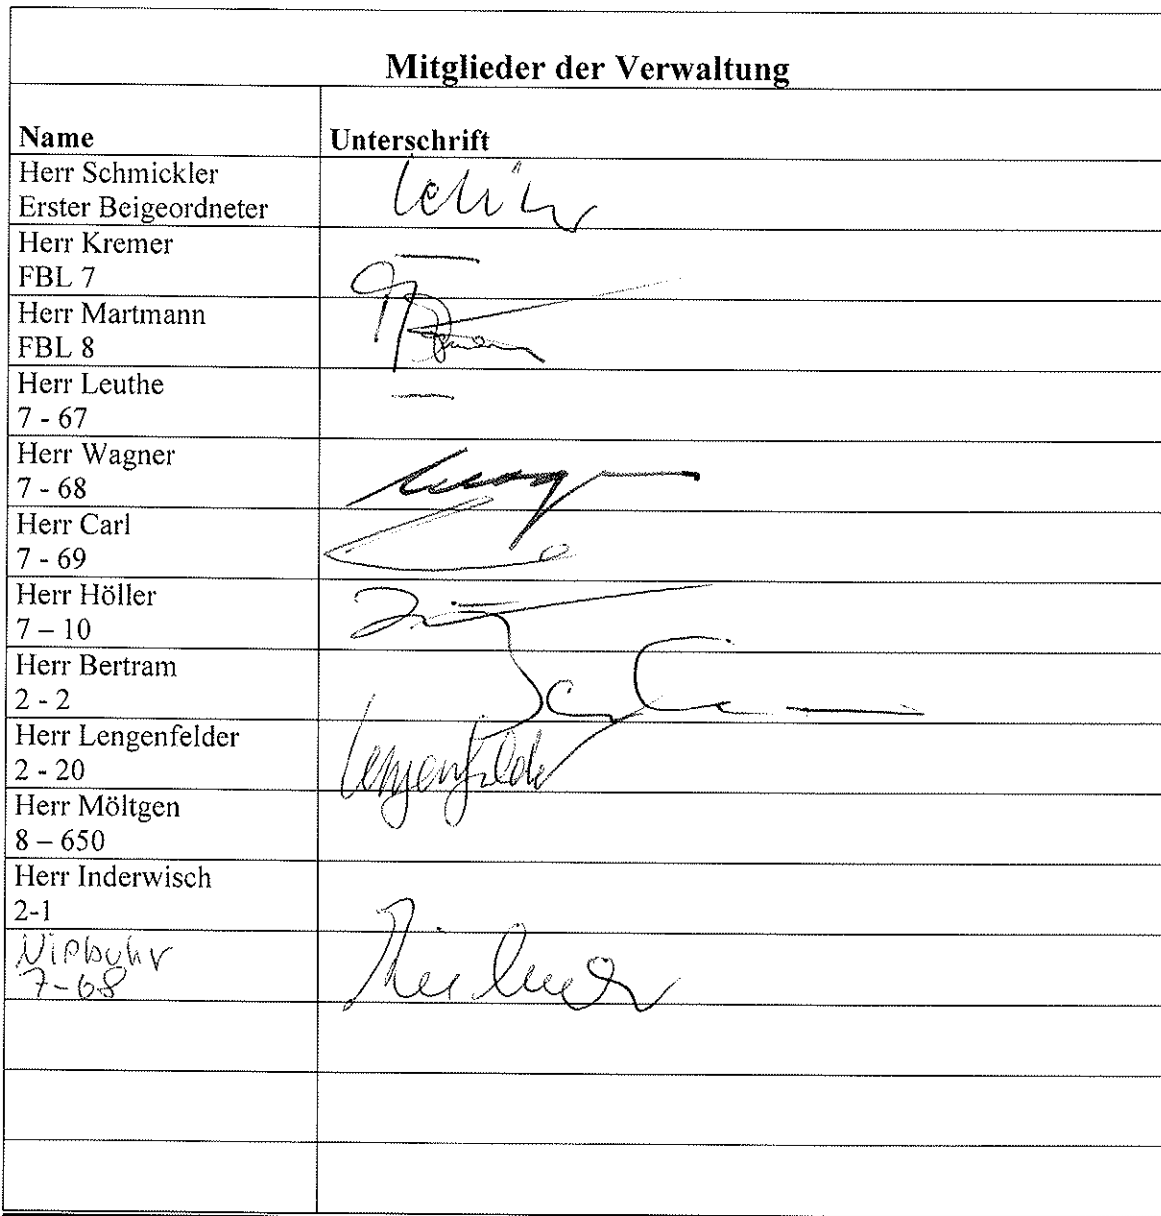 Mitglieder der Verwaltung
Name Unterschrift
Herr Schmickler
Erster Beigeordneter
Herr Kremer
FBL 7 —
Herr Martmann
FBL 8
Herr Leuthe
7 - 67 —
Herr Wagner
7 - 68
Herr Carl
7 - 69
Herr Höller
7 – 10
Herr Bertram
2 - 2
Herr Lengenfelder
2 - 20 Lengenfelder
Herr Möltgen
8 – 650
Herr Inderwisch
2-1
Niebuhr
7-68